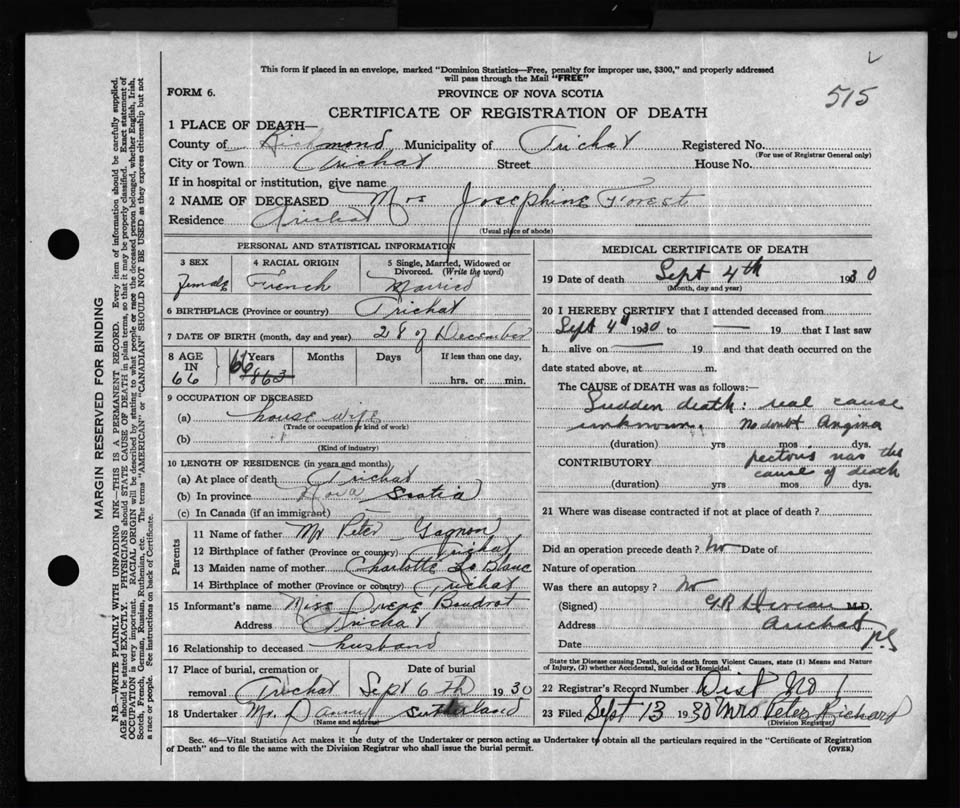 This form if placed in an envelope, marked "Dominion Statistics—Free, penalty for improper use, $300," and properly addressed
will pass through the Mail "FREE"
FORM 6.
PROVINCE OF NOVA SCOTIA
515
CERTIFICATE OF REGISTRATION OF DEATH
1 PLACE OF DEATH—
County of Richmond Municipality of Arichat Registered No.
(For use of Registrar General only)
City or Town Arichat Street House No.
If in hospital or institution, give name
2 NAME OF DECEASED Mrs Josephine Forest
Residence Arichat
(Usual place of abode)
PERSONAL AND STATISTICAL INFORMATION
3 SEX
Female
4 RACIAL ORIGIN
French
5 Single, Married, Widowed or
Divorced. (Write the word)
Married
6 BIRTHPLACE (Province or country) Arichat
7 DATE OF BIRTH (month, day and year) 28 of December
8 AGE
IN
66
Years
66
1863
Months
Days
If less than one day,
hrs. or min.
9 OCCUPATION OF DECEASED
(a) house wife
(Trade or occupation or kind of work)
(b)
(Kind of industry)
10 LENGTH OF RESIDENCE (in years and months)
(a) At place of death Arichat
(b) In province Nova Scotia
(c) In Canada (if an immigrant)
Parents
11 Name of father Mr Peter Gagnon
12 Birthplace of father (Province or country) Arichat
13 Maiden name of mother Charlotte Le Blanc
14 Birthplace of mother (Province or country) Arichat
15 Informant's name Miss Boudrot
Address Arichat
16 Relationship to deceased husband
17 Place of burial, cremation or
removal Arichat
Date of burial
Sept 6th 1930
18 Undertaker Mr. Danny Sutherland
(Name and address)
MEDICAL CERTIFICATE OF DEATH
19 Date of death Sept 4th 1930
(Month, day and year)
20 I HEREBY CERTIFY that I attended deceased from
Sept 4th 1930 to — 19 that I last saw
h alive on — 19 and that death occurred on the
date stated above, at m.
The CAUSE of DEATH was as follows:
Sudden death: real cause
unknown. No doubt Angina
(duration) yrs mos dys.
pectoris was the
CONTRIBUTORY cause of death
(duration) yrs mos dys.
21 Where was disease contracted if not at place of death?
Did an operation precede death? No Date of
Nature of operation
Was there an autopsy? No
(Signed) M.D.
Address Arichat
Date N.S
State the Disease causing Death, or in death from Violent Causes, state (1) Means and Nature
of Injury, (2) whether Accidental, Suicidal or Homicidal.
22 Registrar's Record Number Dist No 1
23 Filed Sept 13 1930 Mrs Peter Richard
(Division Registrar)
Sec. 46—Vital Statistics Act makes it the duty of the Undertaker or person acting as Undertaker to obtain all the particulars required in the "Certificate of Registration
of Death" and to file the same with the Division Registrar who shall issue the burial permit.
(OVER)
MARGIN RESERVED FOR BINDING
N.B.—WRITE PLAINLY WITH UNFADING INK—THIS IS A PERMANENT RECORD. Every item of information should be carefully supplied.
AGE should be stated EXACTLY. PHYSICIANS should STATE CAUSE OF DEATH in plain terms, so that it may be properly classified. Exact statement of
OCCUPATION is very important. RACIAL ORIGIN will be described by stating to what people or race the deceased person belonged, whether English, Irish,
Scotch, French, German, Russian, Ruthenian, etc. The terms "AMERICAN" or "CANADIAN" SHOULD NOT BE USED as they express citizenship but not
a race or people. See instructions on back of Certificate.